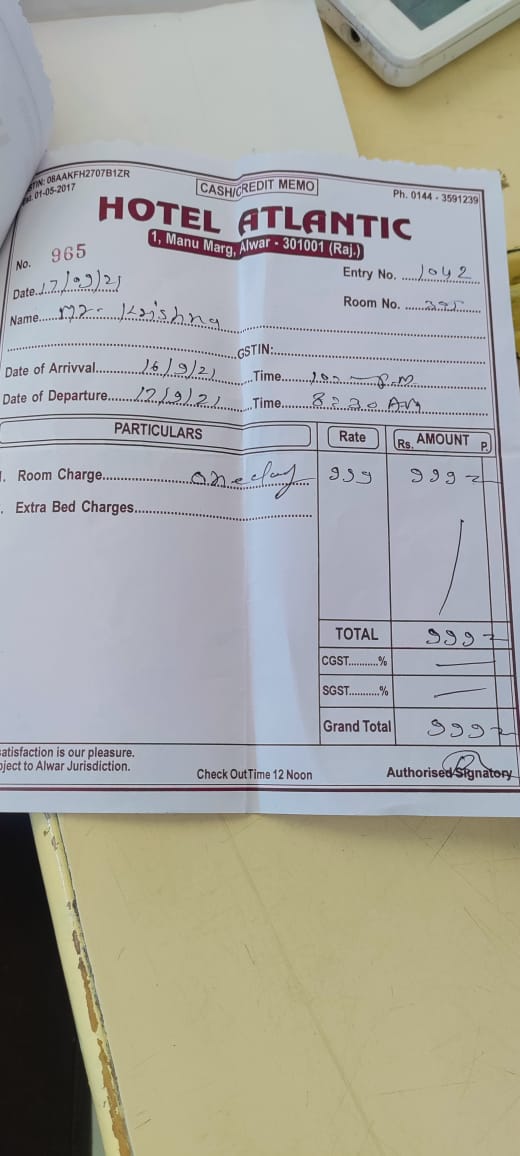 TIN: 08AAKFH2707B1ZR
01-05-2017
CASH/CREDIT MEMO
Ph. 0144 - 3591239
HOTEL ATLANTIC
1, Manu Marg, Alwar - 301001 (Raj.)
No. 965
Entry No. 1042
Date. 17/09/21
Room No.
Name Mr. Krishna
GSTIN:
Date of Arrivval 16/9/21 Time P.M
Date of Departure 17/9/21 Time 8:30 AM
PARTICULARS Rate Rs. AMOUNT P.
. Room Charge one day 999 999
. Extra Bed Charges
TOTAL 999
CGST %
SGST %
Grand Total 999
atisfaction is our pleasure.
ject to Alwar Jurisdiction.
Check OutTime 12 Noon
Authorised Signatory